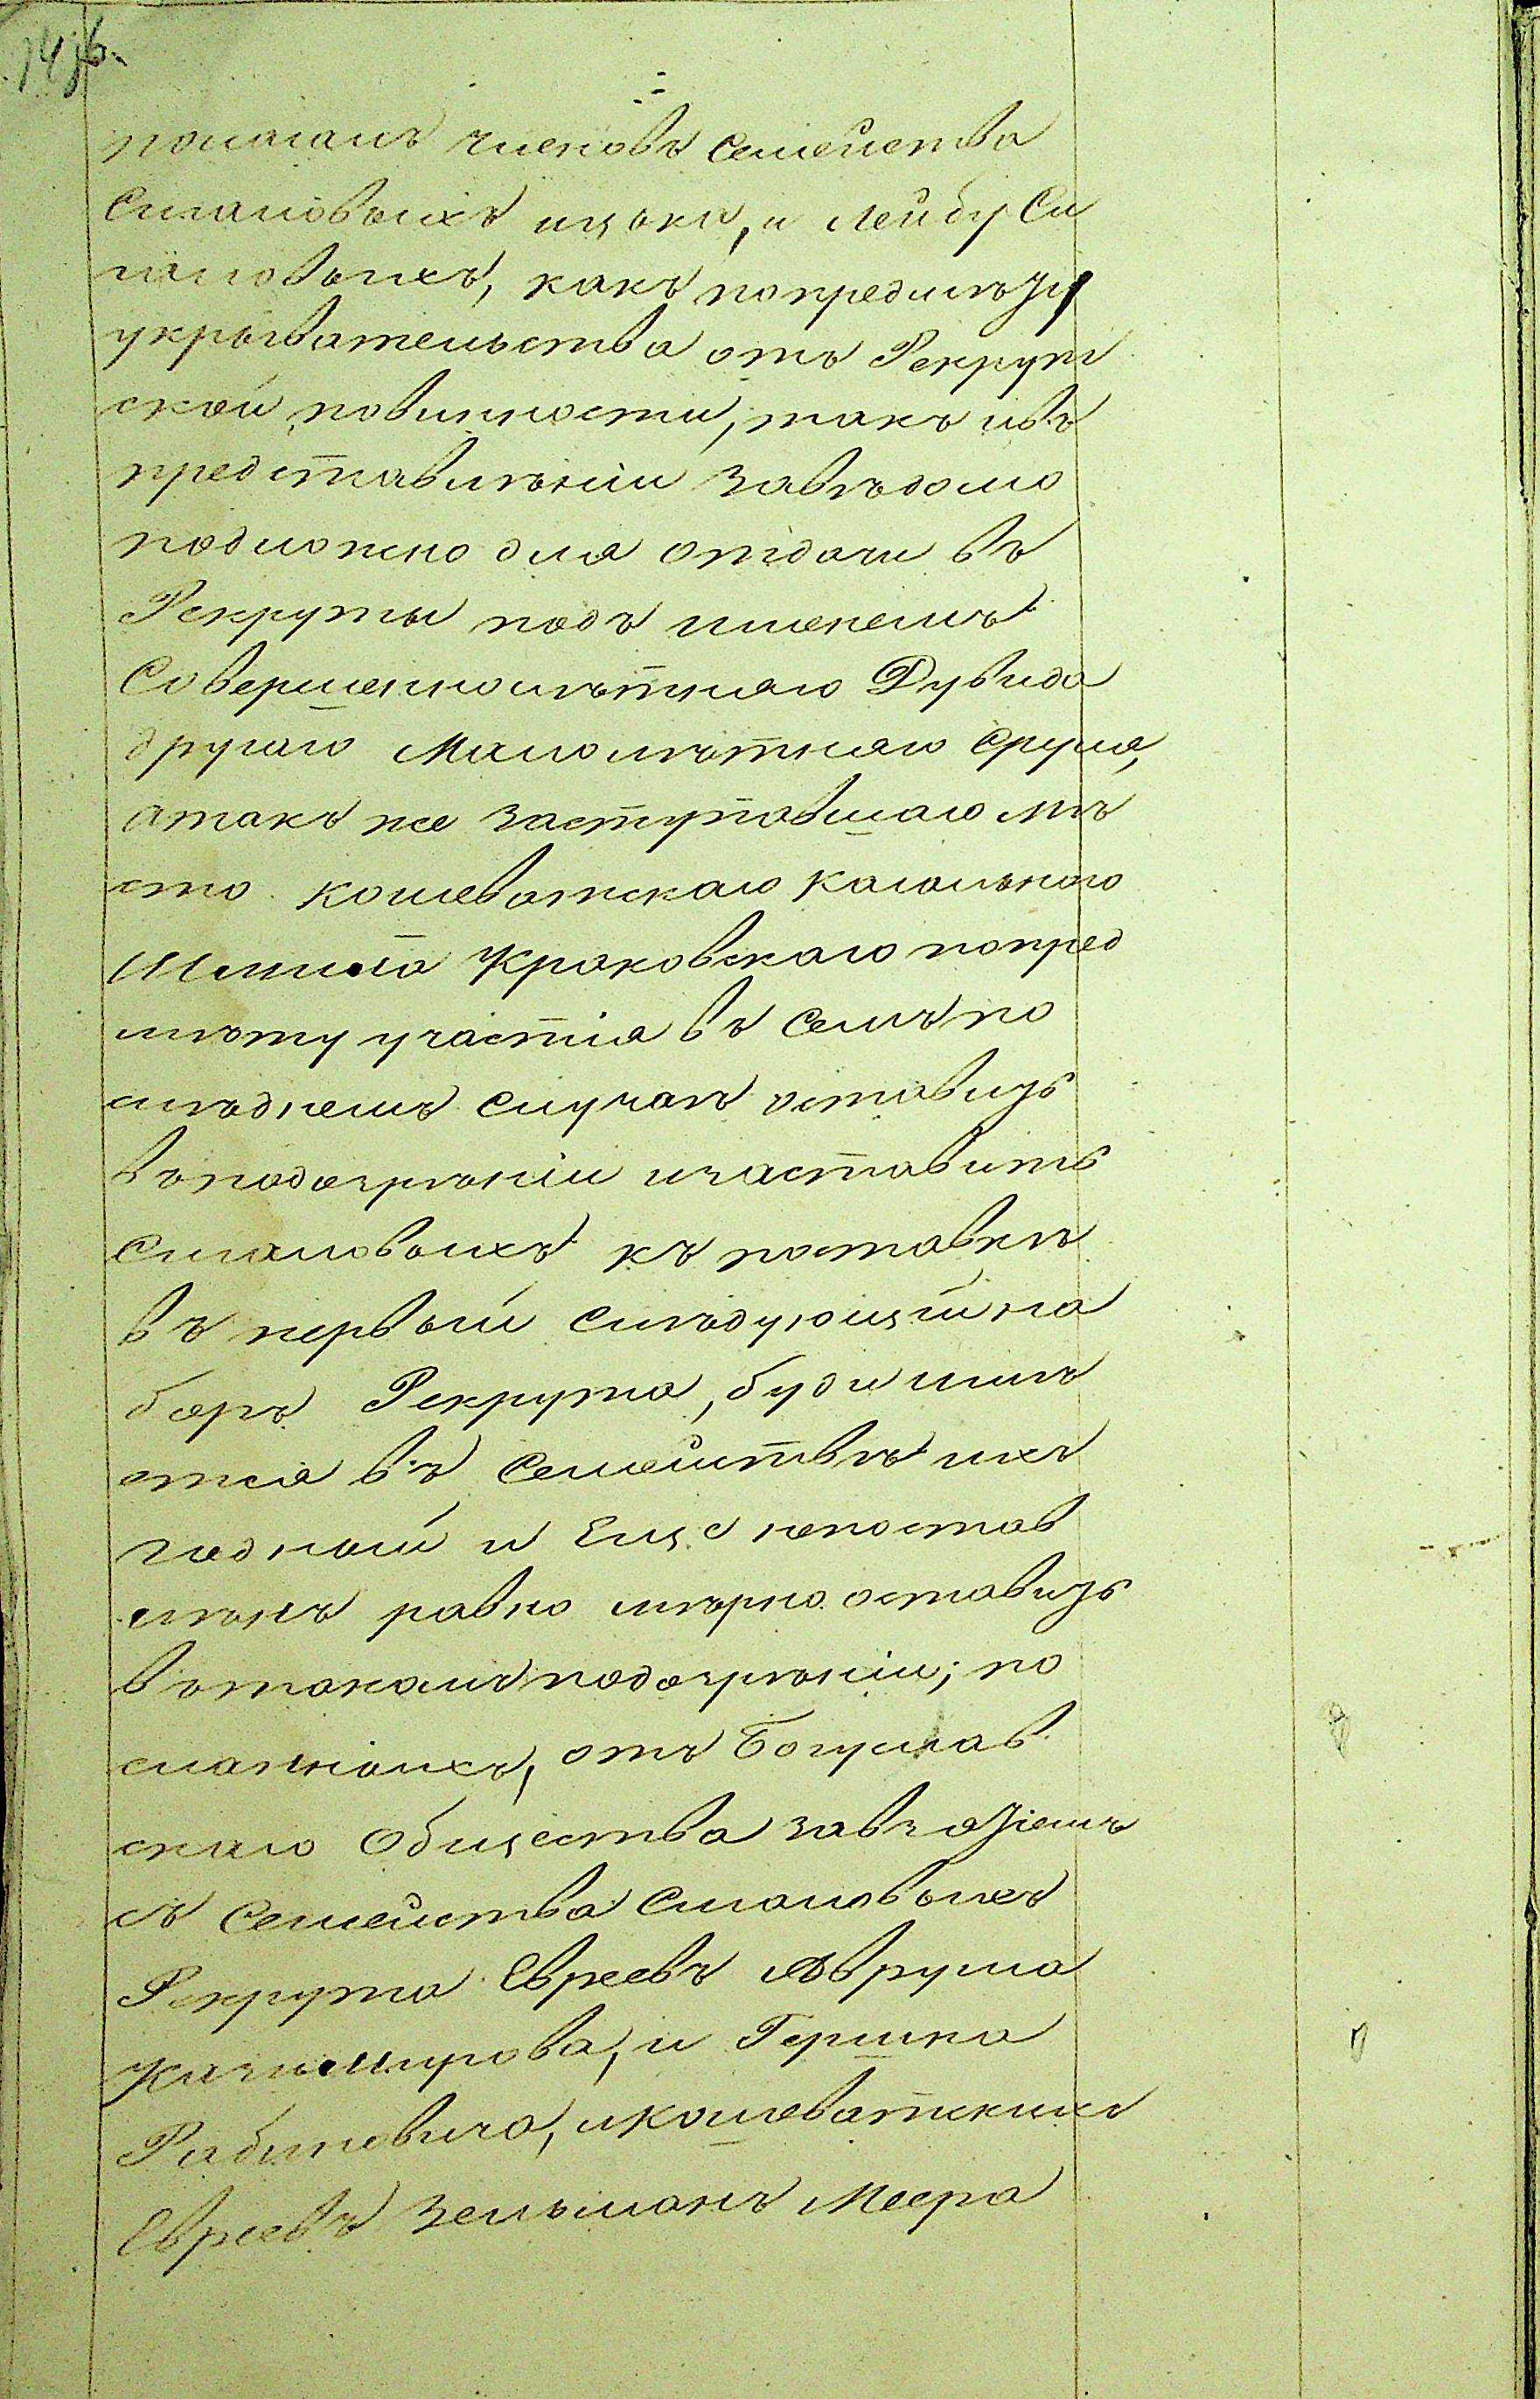 полагалъ членовъ семейства
Смаловыхъ ицька, и Лейбу См
аловыхъ, какъ попредмѣту
укрывательства отъ Рекрут
ской повинности, такъ ивъ
представленіи завѣдомо
подложно для отдачи въ
Рекруты подъ именемъ
Совершеннолѣтняго Дувида
другаго Малолѣтняго Сруля,
атакъ же заступавшаго мѣ
сто кошеватскаго кагальнаго
Шмиля Краковскаго попред
мѣту участія въ семъ по
слѣднемъ случаѣ оставить
въподозрѣніи изаставить
Смаловыхъ къ поставкѣ
въ первый слѣдующій на
боръ Рекрута, буде имѣ
ется въ семействѣ ихъ
годный и Еще непостав
лѣнъ равно мѣрно оставить
вътакомъ подозрѣніи; по
сланныхъ, отъ Богуслав
скаго Общества завзятіемъ
съ семейства Смаловыхъ
Рекрута Евреевъ Аврума
Казимирова, и Гершка
Рабиновича, икошеватскихъ
Евреевъ Зельманъ Меера